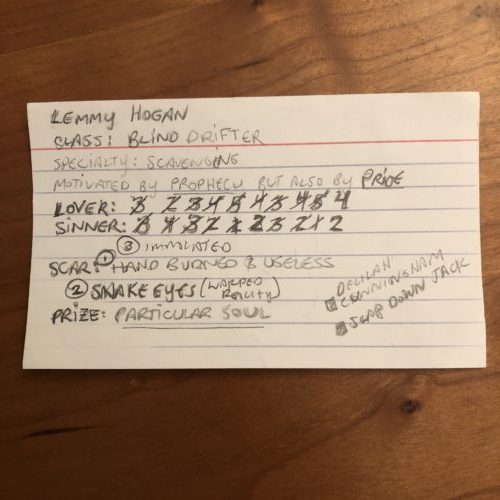 LEMMY HOGAN
CLASS: BLIND DRIFTER
SPECIALTY: SCAVENGING
MOTIVATED BY PROPHECY BUT ALSO BY PRIDE
LOVER: 3 2 3 4 5 4 3 4 5 4
SINNER: 3 4 3 2 1 2 3 2 1 2
③ IMMOLATED
SCAR: ① HAND BURNED & USELESS
② SNAKE EYES (WARPED REALITY)
PRIZE: PARTICULAR SOUL
DELILAH
CUNNINGHAM
SLAP DOWN JACK